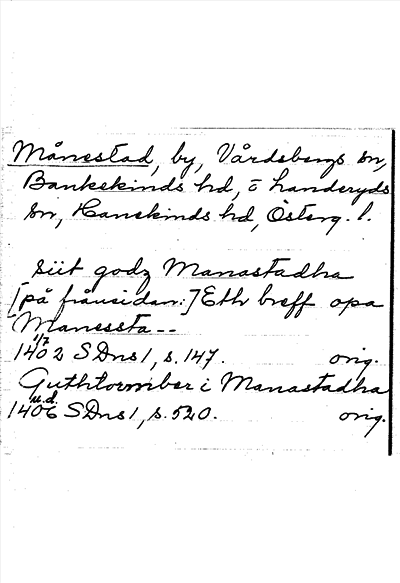 Månestad, by, Vårdsbergs sn,
Bankekinds hd, ē Landeryds
sn, Hanekinds hd, Österg. l.
siit godz Manastadha
[på frånsidan:] Eth breff opa
Manessta--
1/7
1402 SDns 1, s. 147. orig.
Guthtormber i Manastadha
u.d.
1406 SDns 1, s. 520. orig.